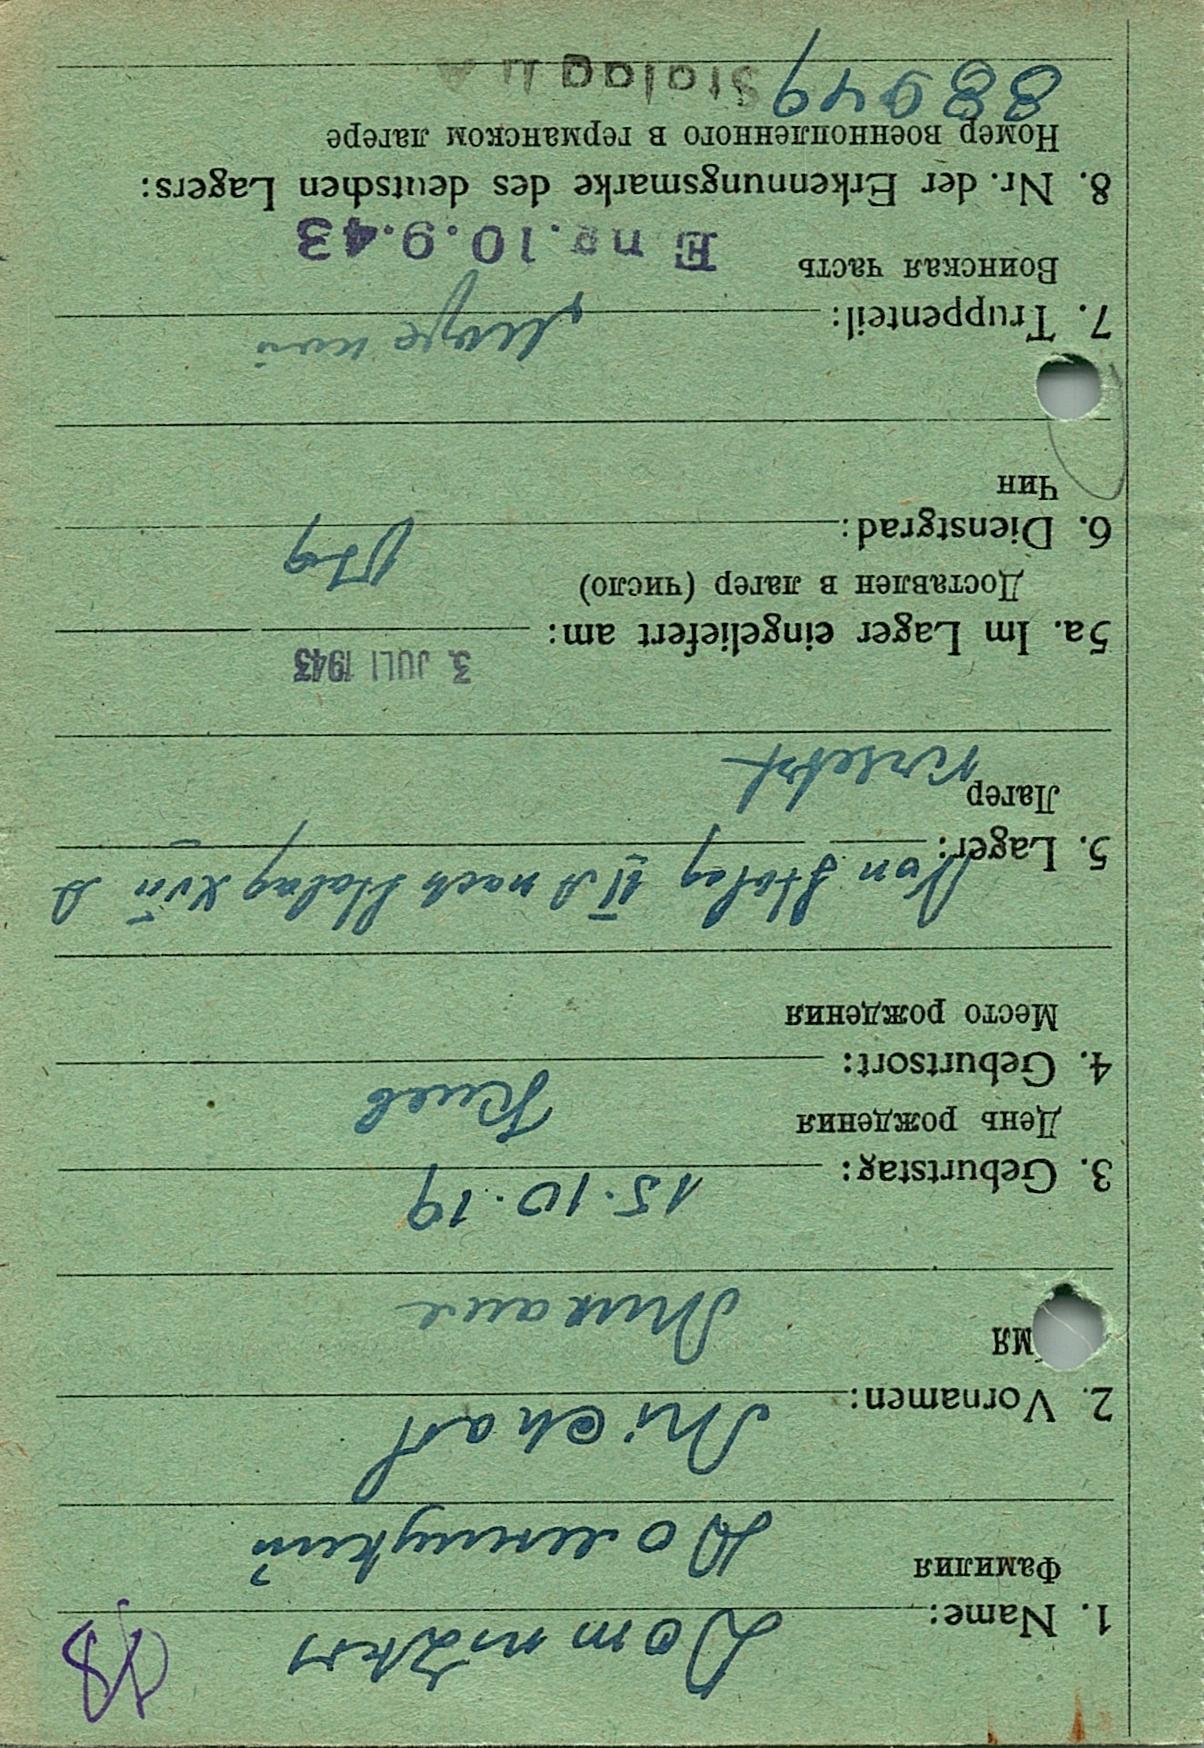 48
1. Name:
Фамилия
2. Vornamen: Michal
мя Михаил
3. Geburtstag: 15.10.19
День рождения
4. Geburtsort: Киев
Место рождения
5. Lager: Von Stalag II A nach Stalag XVII A
Лагер
versetzt
5a. Im Lager eingeliefert am: 3. JULI 1943
Доставлен в лагер (число)
6. Dienstgrad:
Чин
7. Truppenteil:
Воинская часть
10.9.43
8. Nr. der Erkennungsmarke des deutschen Lagers:
Номер военнопленного в германском лагере
88949 Stalag II A